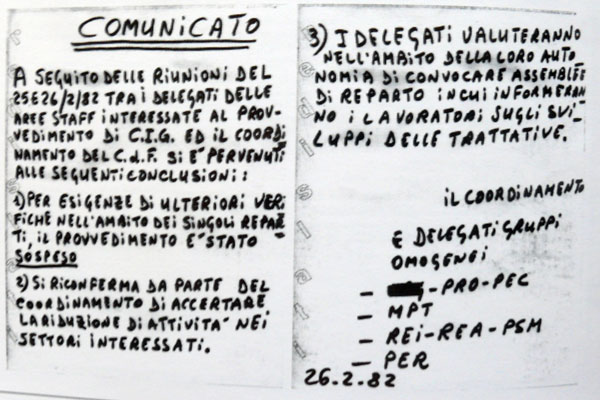 COMUNICATO
A SEGUITO DELLE RIUNIONI DEL
25E26/2/82 TRA I DELEGATI DELLE
AREE STAFF INTERESSATE AL PROV-
VEDIMENTO DI C.I.G. ED IL COORDI
NAMENTO DEL C.d.F. SI E' PERVENUTI
ALLE SEGUENTI CONCLUSIONI:
1) PER ESIGENZE DI ULTERIORI VERI
FICHE NELL'AMBITO DEI SINGOLI REPAR
TI, IL PROVVEDIMENTO E' STATO
SOSPESO
2) SI RICONFERMA DA PARTE DEL
COORDINAMENTO DI ACCERTARE
LA RIDUZIONE DI ATTIVITA' NEI
SETTORI INTERESSATI.
3) I DELEGATI VALUTERANNO
NELL'AMBITO DELLA LORO AUTO
NOMIA DI CONVOCARE ASSEMBLEE
DI REPARTO IN CUI INFORMERAN
NO I LAVORATORI SUGLI SVI-
LUPPI DELLE TRATTATIVE.
IL COORDINAMENTO
E DELEGATI GRUPPI
OMOGENEI
- PRO-PEC
- MPT
- REI-REA-PSM
- PER
26.2.82